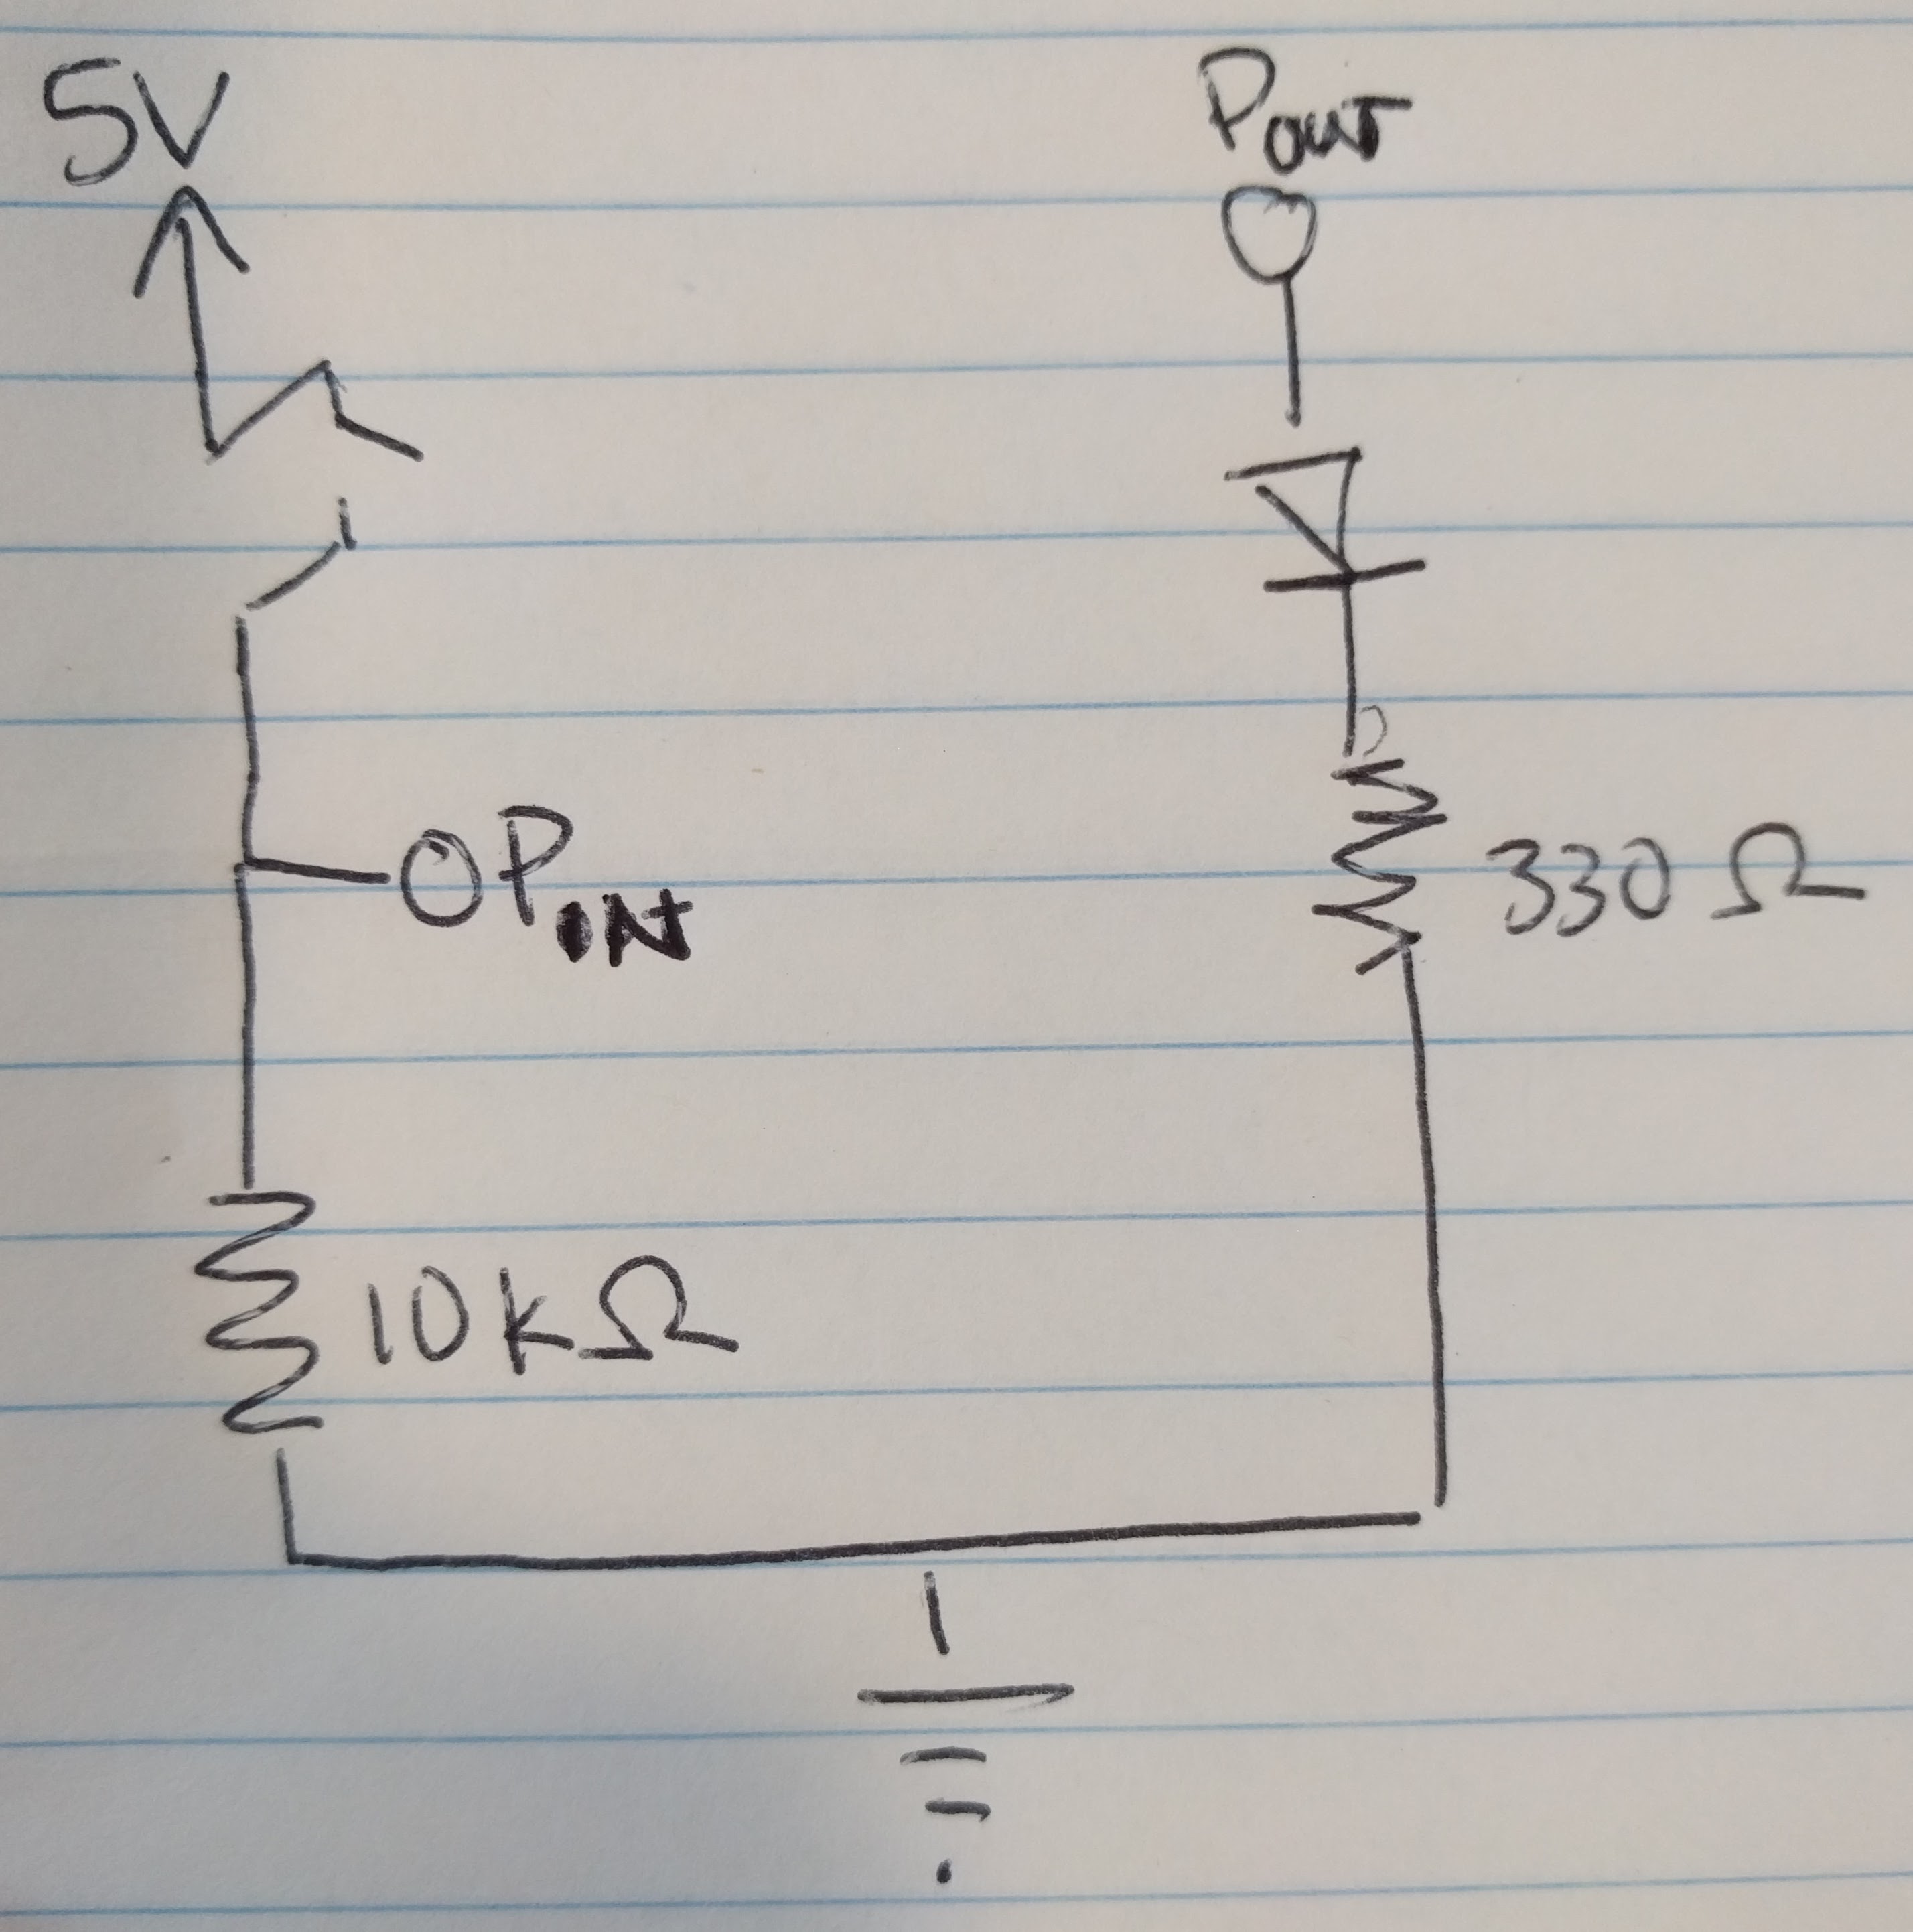 5V
Pout
PIN
330 Ω
10kΩ